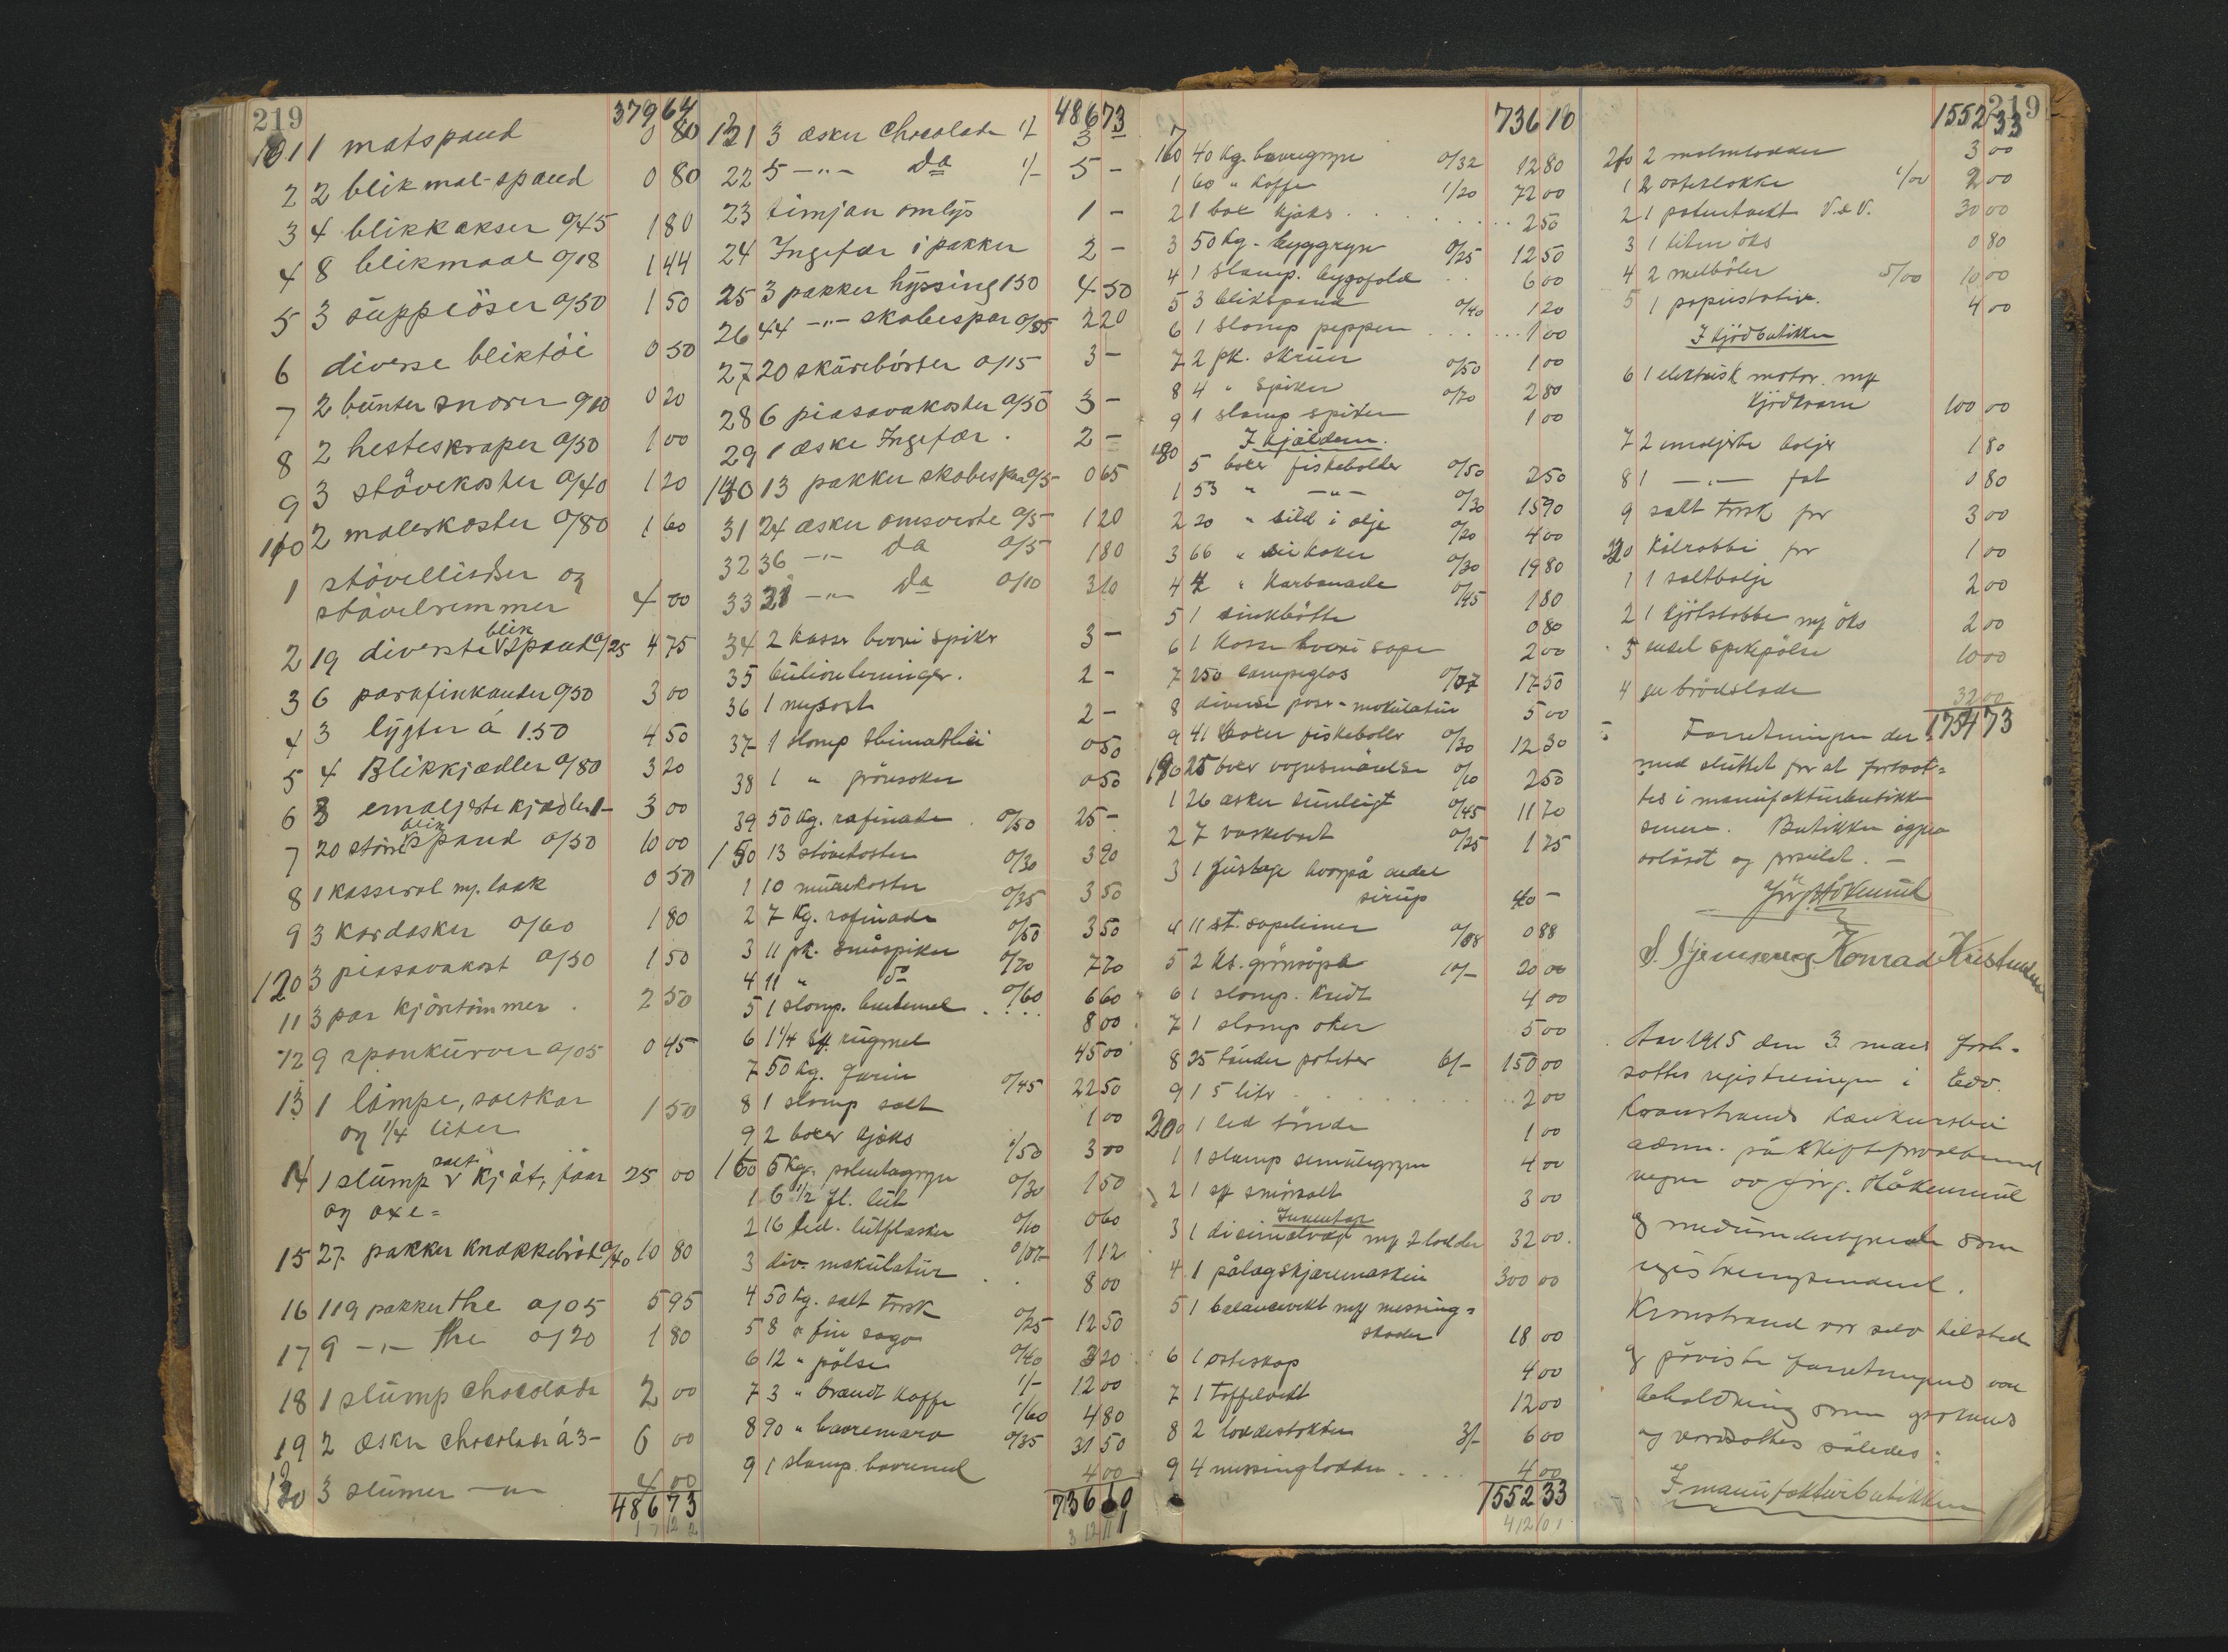 219
379 64
101 1 matspand 0 80
2 2 blik mal-spand 0 80
3 4 blikkakser 0/45 1 80
4 8 blikmaal 0/18 1 44
5 3 süppeöser 0/50 1 50
6 diverse bliktöi 0 50
7 2 bünter snorer 0/10 0 20
8 2 hesteskraper 0/50 1 00
9 3 stövekoster 0/40 1 20
110 2 malerkoster 0/80 1 60
1 stövellidser og
stövelremmer 4 00
2 19 diverse blik spand 0/25 4 75
3 6 parafinkander 0/50 3 00
4 3 lygter á 1.50 4 50
5 4 Blikkjædler 0/80 3 20
6 3 emaljerte kjædler 1- 3 00
7 20 större blik spand 0/50 10 00
8 1 kasserol m/. laak 0 50
9 3 kardasker 0/60 1 80
120 3 piasavakost 0/50 1 50
11 3 par kjöretömmer . 2 50
12 9 sponkürver 0/05 0 45
13 1 lampe, saltkar
og 1/4 liter 1 50
14 1 slümp salt kjöt, faar 25 00
og oxe =
15 27 pakker knækkebröd 0/40 10 80
16 119 pakker the 0/05 5 95
17 9 -"- the 0/20 1 80
18 1 slümp chocolade 2 00
19 2 æsker chocolade á 3- 6 00
120 3 stümer -"- 4 00
486 73
486 73
121 3 æsker Chocolade 1/- 3 -
22 5 -"- do 1/- 5 -
23 timjan omlys 1 -
24 Ingefær i pakker 2 -
25 3 pakker hyssing 150 4 50
26 44 -"- skobespar 0/05 2 20
27 20 skürebörster 0/15 3 -
28 6 piasavakoster 0/50 3 -
29 1 æske Ingefær . 2 -
130 13 pakker skobespar 0/5 0 65
31 24 æsker omsverte 0/5 1 20
32 36 -"- do 0/5 1 80
33 31 -"- do 0/10 3 10
34 2 kasser hvori spiker 3 -
35 bülionterninger. 2 -
36 1 mysost 2 -
37 1 slomp 0 50
38 1 " 0 50
39 50 kg. rafinade . 0/50 25 -
150 13 stövekoster 0/30 3 90
1 10 mürekoster 0/35 3 50
2 7 kg. rafinade 0/50 3 50
3 11 pk. småspiker 0/70 7 70
4 11 " do 0/60 6 60
5 1 slomp. 8 00
6 1 1/4 sk. rügmel 45 00
7 50 kg. farin 0/45 22 50
8 1 slomp salt 1 00
9 2 bokser kjæks 1/50 3 00
160 5 kg. 0/30 1 50
1 6 1/2 fl. lüt 0/10 0 60
2 16 lütflasker 0/07 1 12
3 div. makülatür 8 00
4 50 kg. salt torsk 0/25 12 50
5 8 " fin sago 0/40 3 20
6 12 " pölse 1/- 12 00
7 3 " brændt kaffe 1/60 4 80
8 90 " 0/35 31 50
9 1 slomp. havremel 4 00
736 10
736 10
170 40 kg. havregryn 0/32 12 80
1 60 " kaffe 1/20 72 00
2 1 box kjæks 2 50
3 50 kg. byggryn 0/25 12 50
4 1 slomp. 6 00
5 3 blikspand 0/40 1 20
6 1 slomp pepper 1 00
7 2 pk. skruer 0/50 1 00
8 4 " spiker 0/70 2 80
9 1 slomp spiker 1 00
I kjælderen.
180 5 bokser fiskeboller 0/50 2 50
1 53 " -"- 0/30 15 90
2 20 " sild i olje 0/20 4 00
3 66 " 0/30 19 80
4 4 " karbonade 0/45 1 80
5 1 sinkbötte 0 80
6 1 kasse hvori sæpe 2 00
7 250 lampeglas 0/07 17 50
8 diverse poser - makülatür 5 00
9 41 bokser fiskeboller 0/30 12 30
190 25 bokser vognsmörelse 0/10 2 50
1 26 æsker sünlight 0/45 11 70
2 7 vaskebret 0/25 1 75
3 1 füstage hvorpå endel
sirüp 40 -
4 11 st. 0/08 0 88
5 2 ks. grönsöpe 10/- 20 00
6 1 slomp. kridt 4 00
7 1 slomp oker 5 00
8 25 tönder poteter 6/- 150 00
9 1 5 liter 2 00
200 1 led tönde 1 00
1 1 slomp semülegryn 4 00
2 1 sk smörsalt 3 00
Inventar
3 1 decimalvægt m/ 2 lodder 32 00
4 1 pålægskjæremaskin 300 00
5 1 balancevekt m/ messing =
skaaler 18 00
6 1 osteskap 4 00
7 1 taffelvekt 12 00
8 2 loddestokker 3/- 6 00
9 4 messinglodder 4 00
1552 33
219
1552 33
210 2 malmlodder 3 00
1 2 osteklokker 1/00 2 00
2 1 V. & V. 30 00
3 1 liten öks 0 80
4 2 melböler 5/00 10 00
5 1 papirstativ. 4 00
I kjödbutikken
6 1 elektrisk motor m/
kjödkvern 100 00
7 2 emaljerte boljer 1 80
8 1 -"- fat 0 80
9 salt torsk for 3 00
220 Kålrabbi for 1 00
1 1 saltbalje 2 00
2 1 kjötstabbe m/ öks 2 00
3 endel spekepölse 10 00
4 en brödslade 32 00
1754 73
Forretningen der =
med slüttet for at fortsæt =
tes i manüfaktürbutikken
senere. Butikken igjen
avlåset og forseilet. -
Jörg. Håkensrud
Konrad Kristensen
Aar 1915 den 3 mars fort =
sattes registreringen i Edv.
Kronstrands konkursbo
adm. på skifteforvalterens
vegne av Jörg. Håkensrud
og medundertegnede som
registreringsmænd.
Kronstrand var selv tilstede
og påviste forretningens vare
beholdning som
og værdsattes således:
I manüfaktürbutikken